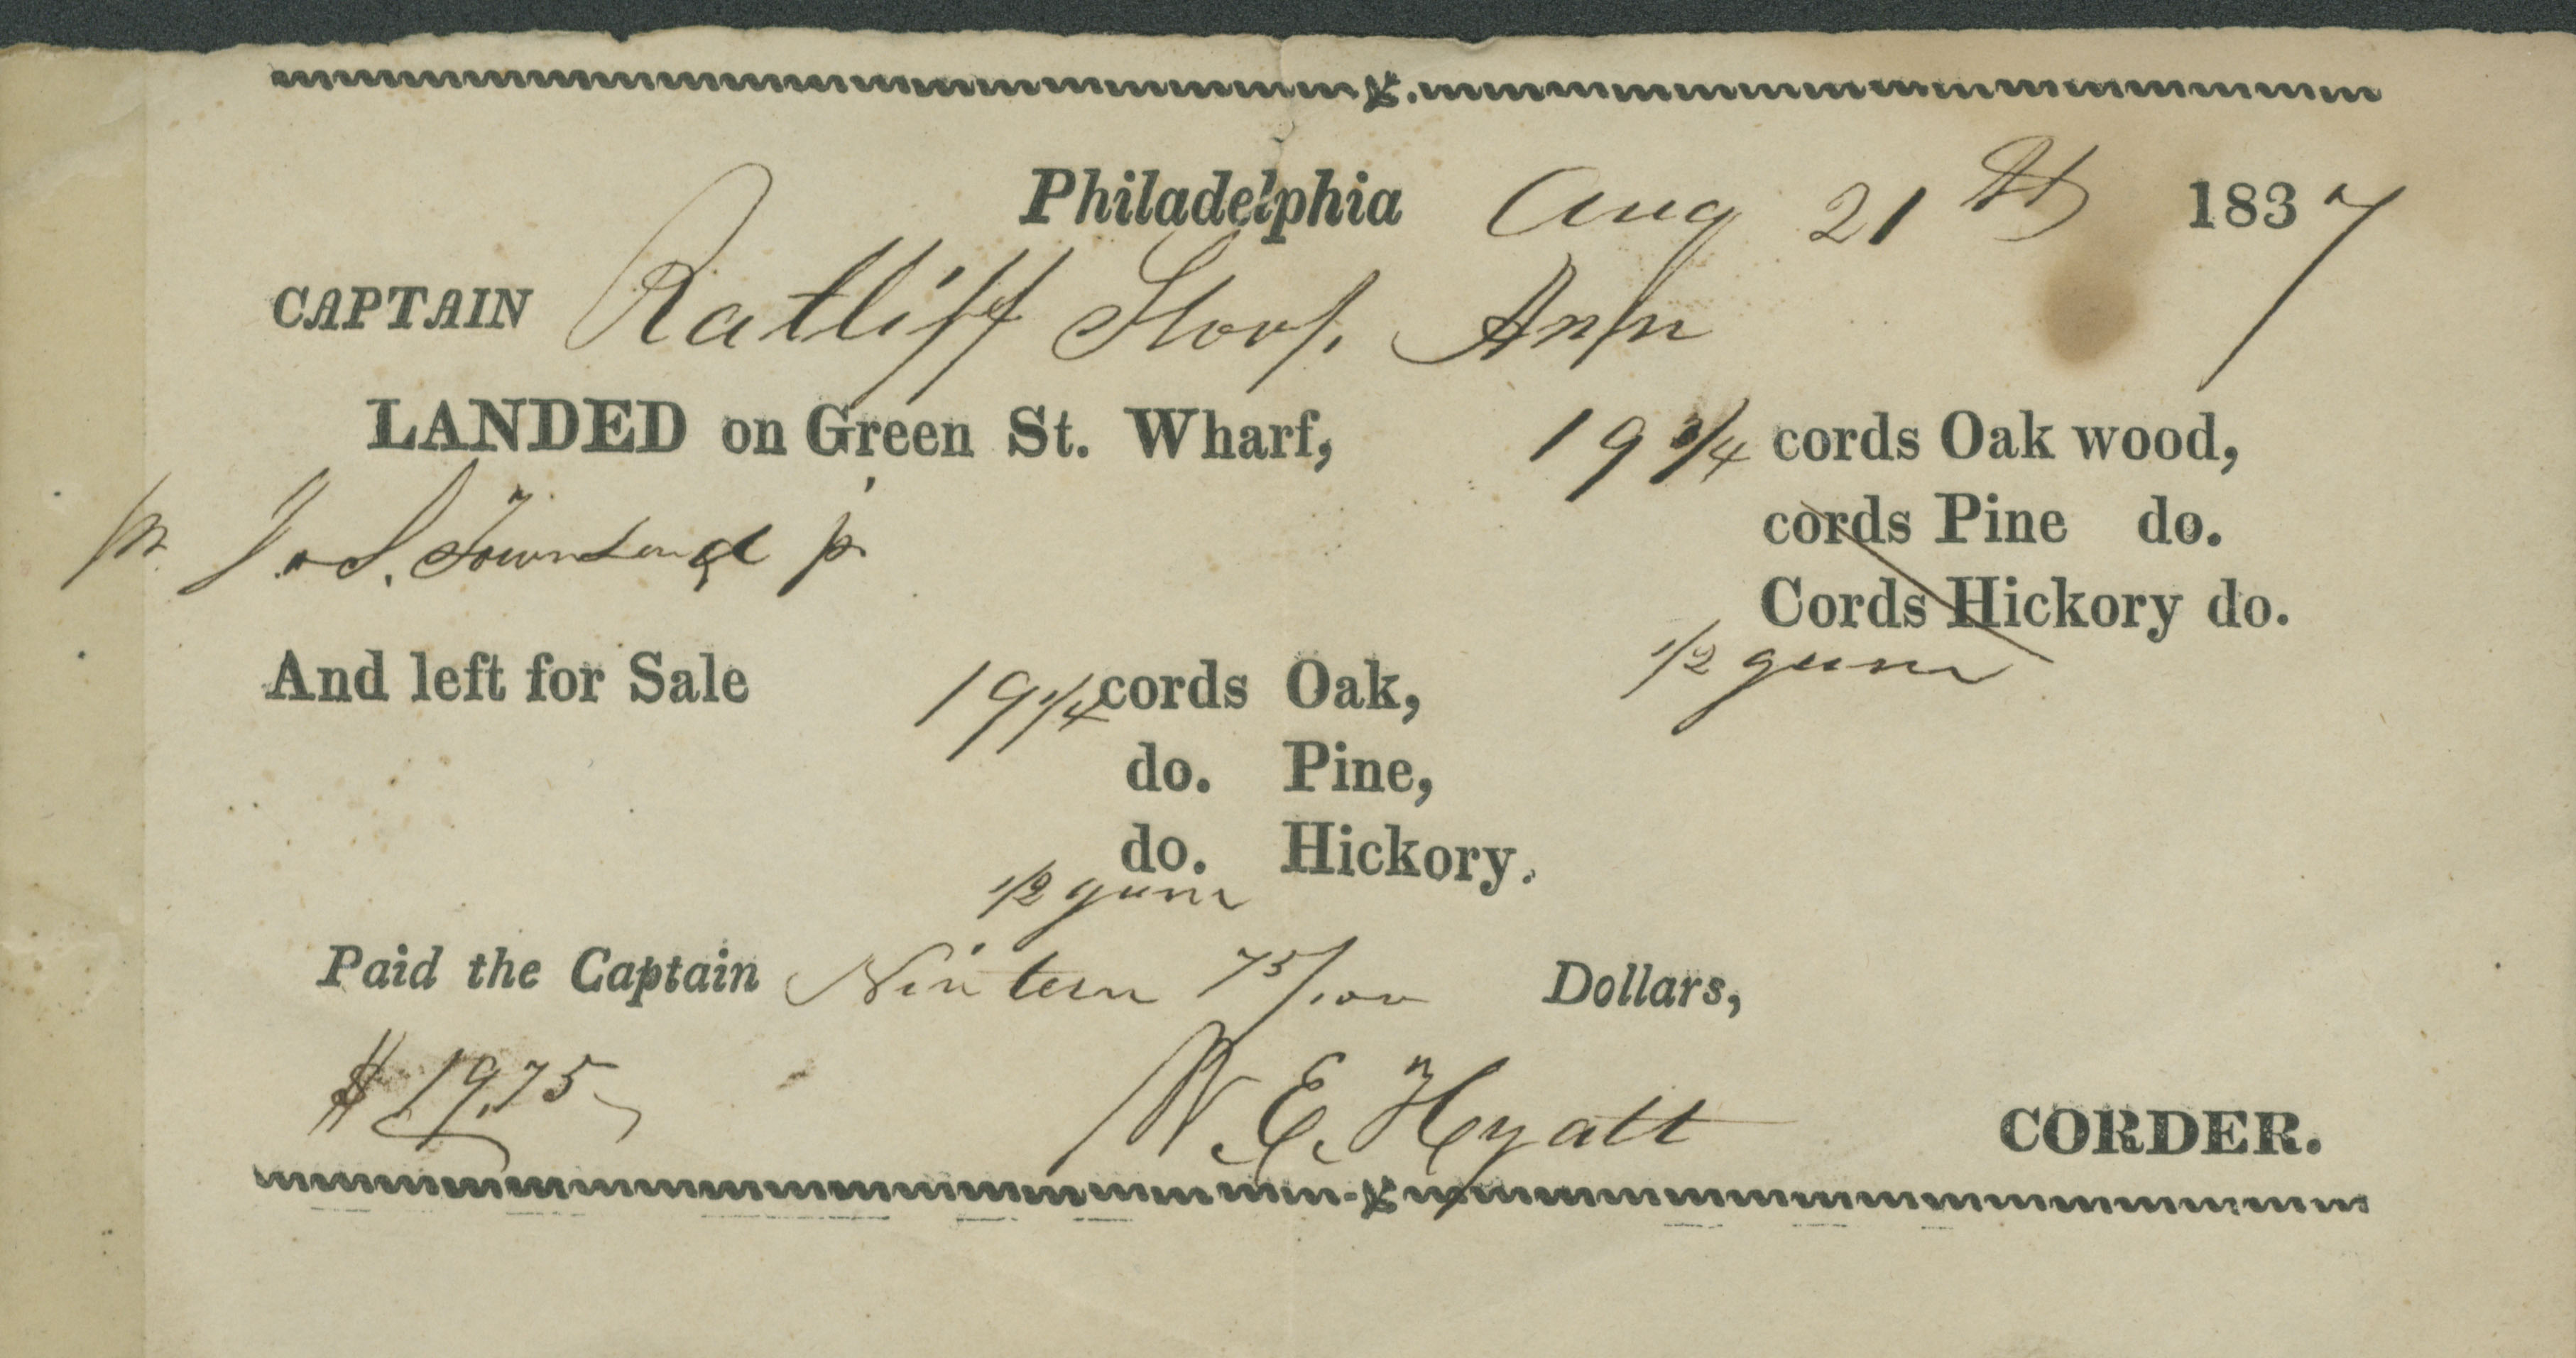 Philadelphia Aug 21st 1837
CAPTAIN Ratliff Sloop Ann
LANDED on Green St. Wharf, 19 3/4 cords Oak wood,
cords Pine do.
for J. & S. Townsend jr
Cords Hickory do.
1/2 gum
And left for Sale 19 1/4 cords Oak,
do. Pine,
do. Hickory.
1/2 gum
Paid the Captain Ninteen 75/100 Dollars,
$19.75
W. E. Hyatt CORDER.